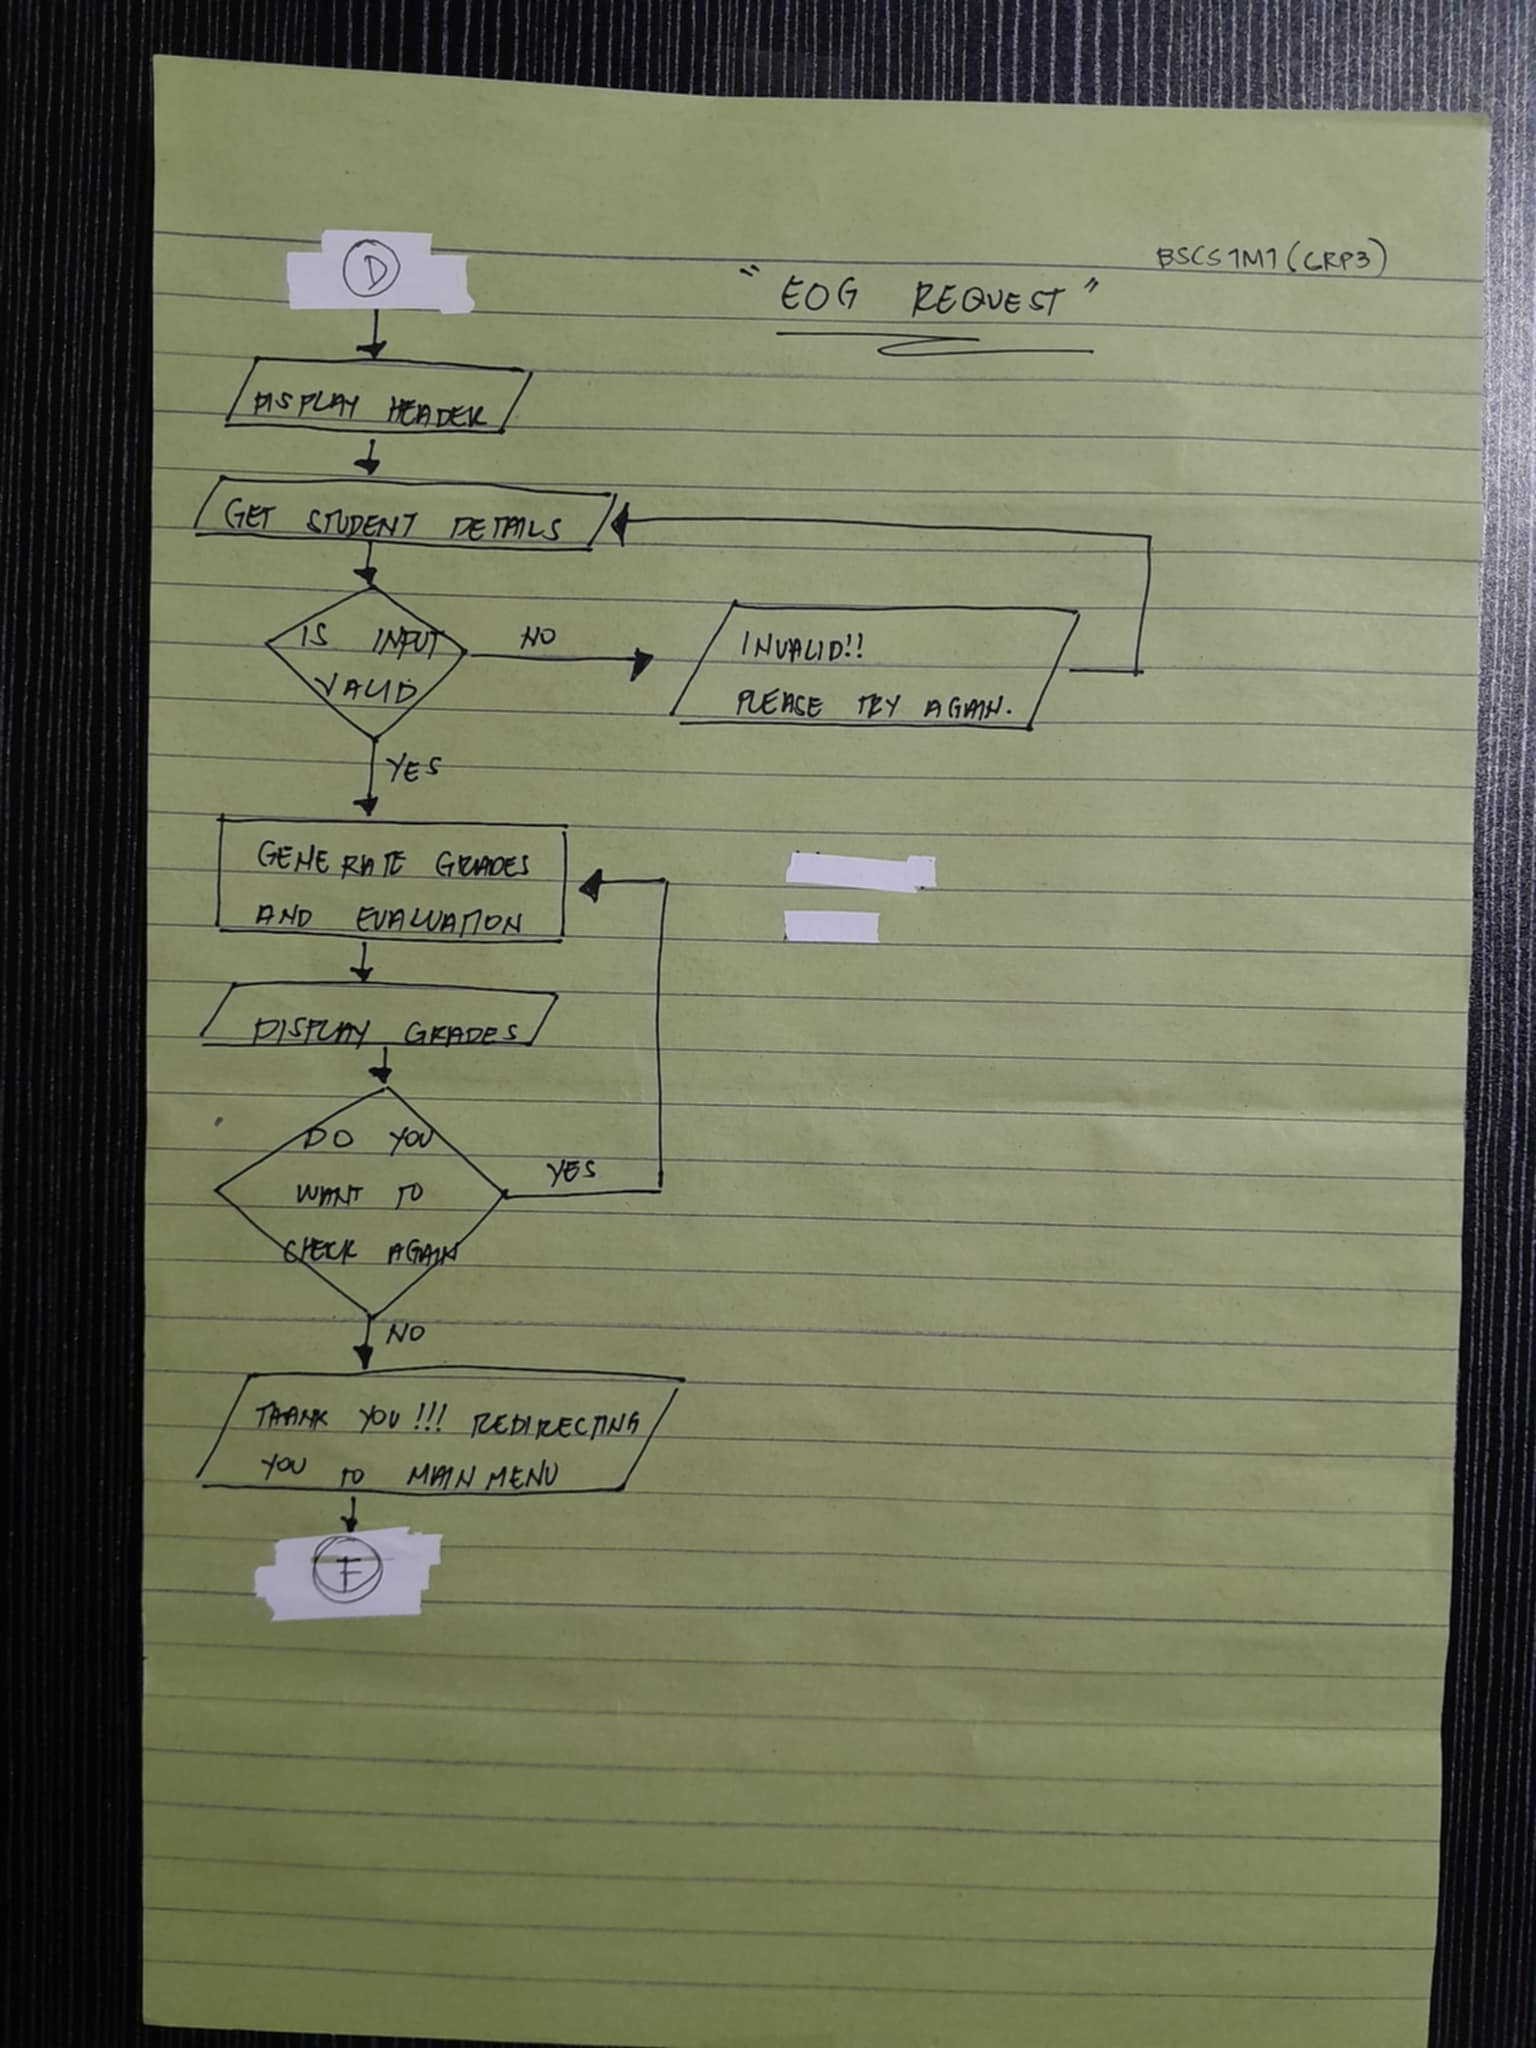 D
BSCS1M1 (GRP3)
" EOG REQUEST "
DISPLAY HEADER
GET STUDENT DETAILS
IS INPUT
VALID
NO
INVALID!!
PLEASE TRY AGAIN.
YES
GENERATE GRADES
AND EVALUATION
DISPLAY GRADES
DO YOU
WANT TO
CHECK AGAIN
YES
NO
THANK YOU!!! REDIRECTING
YOU TO MAIN MENU
F